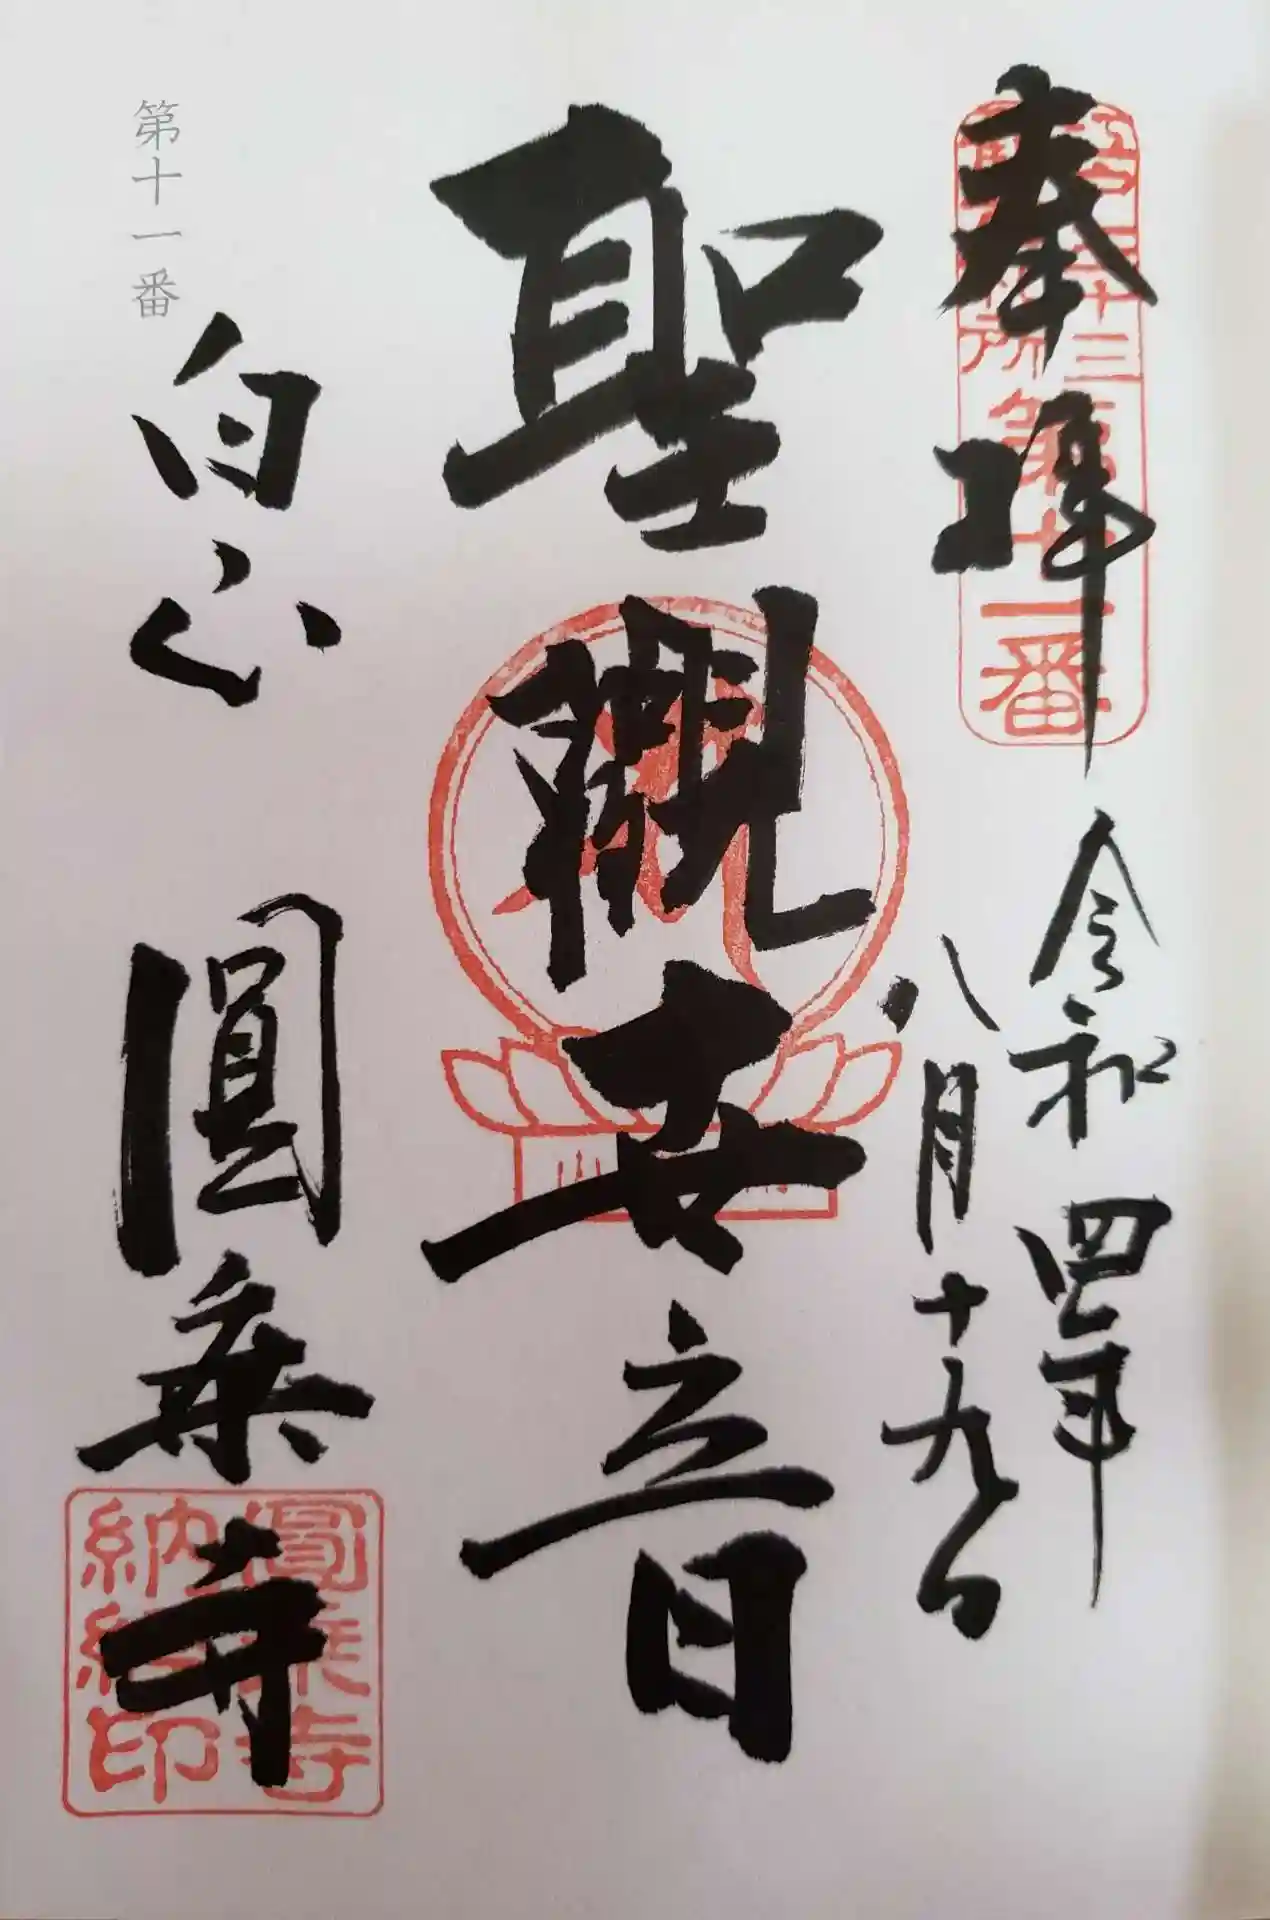 奉拝
江戸三十三
観音札所
第十一番
令和四年
八月十九日
聖觀世音
第十一番
白山
圓乗寺
圓乗寺
納経印